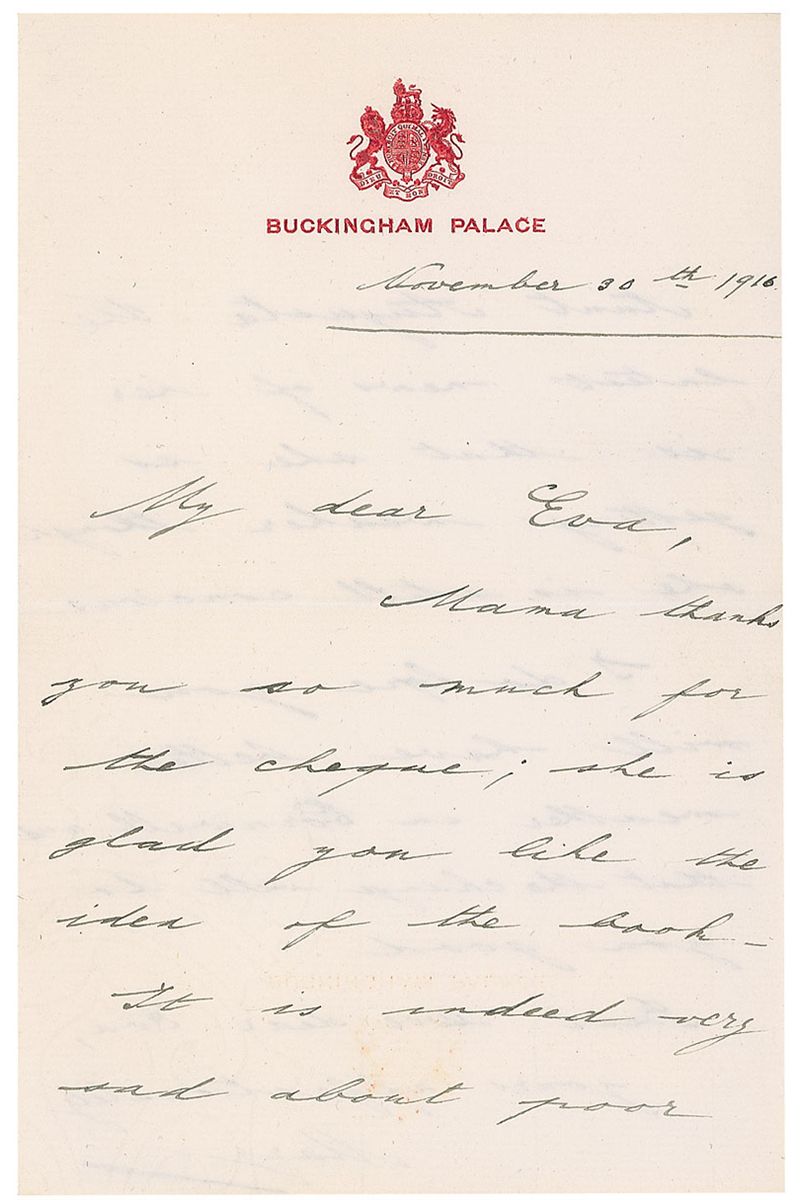 DIEU ET MON DROIT
BUCKINGHAM PALACE
November 30th 1916
My dear Eva,
Mama thanks
you so much for
the cheque; she is
glad you like the
idea of the book –
It is indeed very
sad about poor